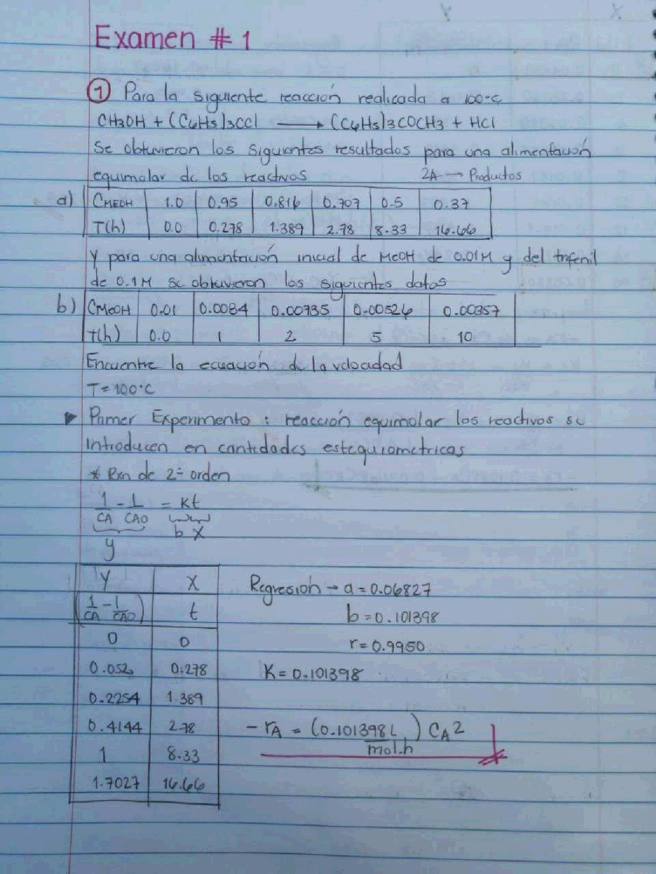 Examen # 1
① Para la siguiente reacción realicada a 100°C
CH3OH + (C6H5)3CCl → (C6H5)3COCH3 + HCl
Se obtuvieron los siguientes resultados para una alimentación
equimolar de los reactivos 2A → Productos
a) CMEOH 1.0 0.95 0.816 0.707 0.5 0.37
T(h) 0.0 0.278 1.389 2.78 8.33 16.66
Y para una alimentación inicial de MeOH de 0.01M y del trifenil
de 0.1M se obtuvieron los siguientes datos
b) CMeOH 0.01 0.0084 0.00735 0.00526 0.00357
T(h) 0.0 1 2 5 10
Encuentre la ecuación de la velocidad
T = 100°C
▶ Primer Experimento : reacción equimolar los reactivos se
introducen en cantidades estequiometricas
* Rxn de 2º orden
1/CA - 1/CAO = Kt
b X
y
Y X
(1/CA - 1/CAO) t
0 0
0.052 0.278
0.2254 1.389
0.4144 2.78
1 8.33
1.7027 16.66
Regresioh → a = 0.06827
b = 0.101398
r = 0.9950
K = 0.101398
- rA = (0.101398 L / mol.h) CA2